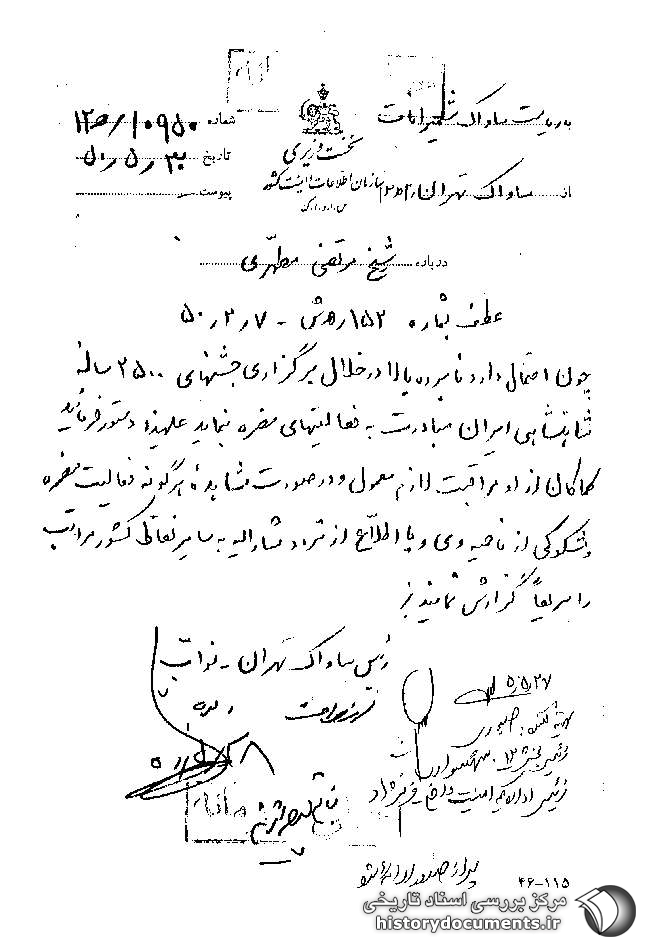 به ریاست ساواک شمیرانات
شماره ۱۰۹۵۰/ ۱۲ه
نخست وزیری
تاریخ ۵۰/۵/۳۰
سازمان اطلاعات و امنیت کشور
س.ا.و.ا.ک
از ساواک تهران
پیوست
درباره شیخ مرتضی مطهری
عطف بشماره ۱۵۲/ه‍ ش - ۵۰/۲/۷
چون احتمال دارد نامبرده بالا در خلال برگزاری جشنهای ۲۵۰۰ ساله
شاهنشاهی ایران مبادرت به فعالیتهای مضره نماید علیهذا دستور فرمائید
کماکان از او مراقبت لازم معمول و در صورت مشاهده هرگونه فعالیت مضره
و مشکوکی از ناحیه وی و یا اطلاع از تردد مشارالیه به سایر نقاط کشور مراتب
را سریعاً گزارش نمایند
رئیس ساواک تهران - نواب
۵/۵/۲۷
تهیه کننده: صبوری
رئیس بخش ۱۲
رئیس اداره یکم امنیت داخلی
۴۶-۱۱۵
مرکز بررسی اسناد تاریخی
historydocuments.ir